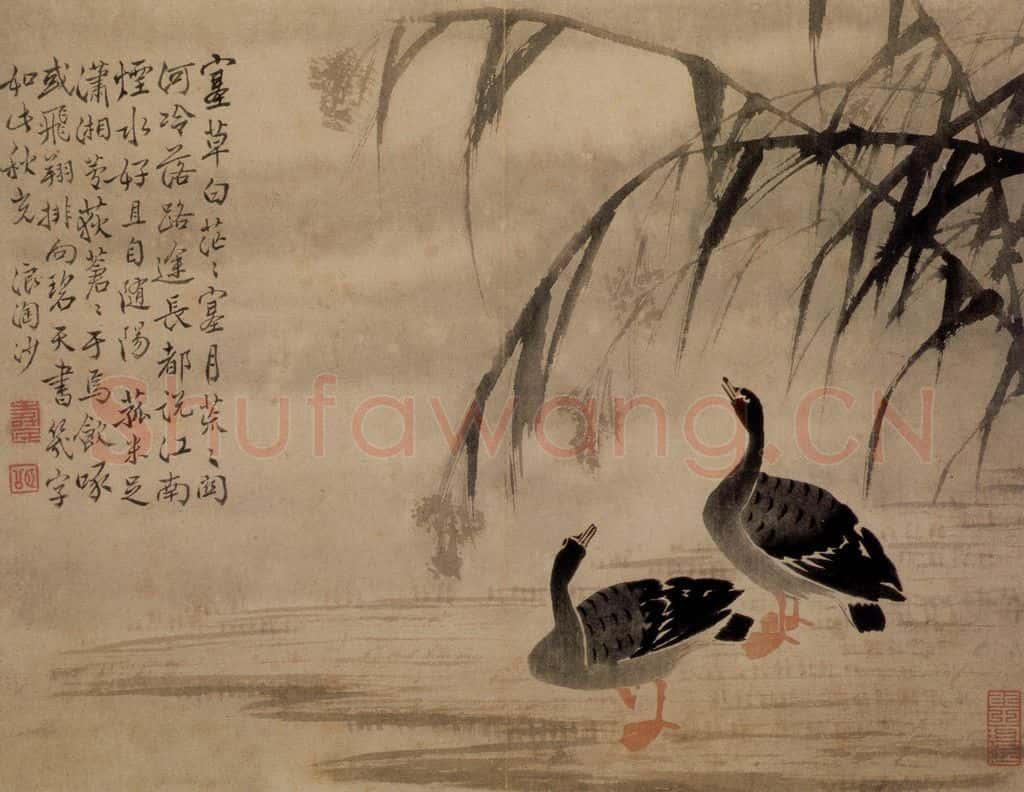 塞草白茫〻塞月荒〻関
河冷落路途長都說江南
煙水好且自隨陽 菰米足
瀟湘芦荻蒼〻于焉飲啄
或飛翔排向碧天書幾字
如此秋光 浪淘沙
Shufawang.CN